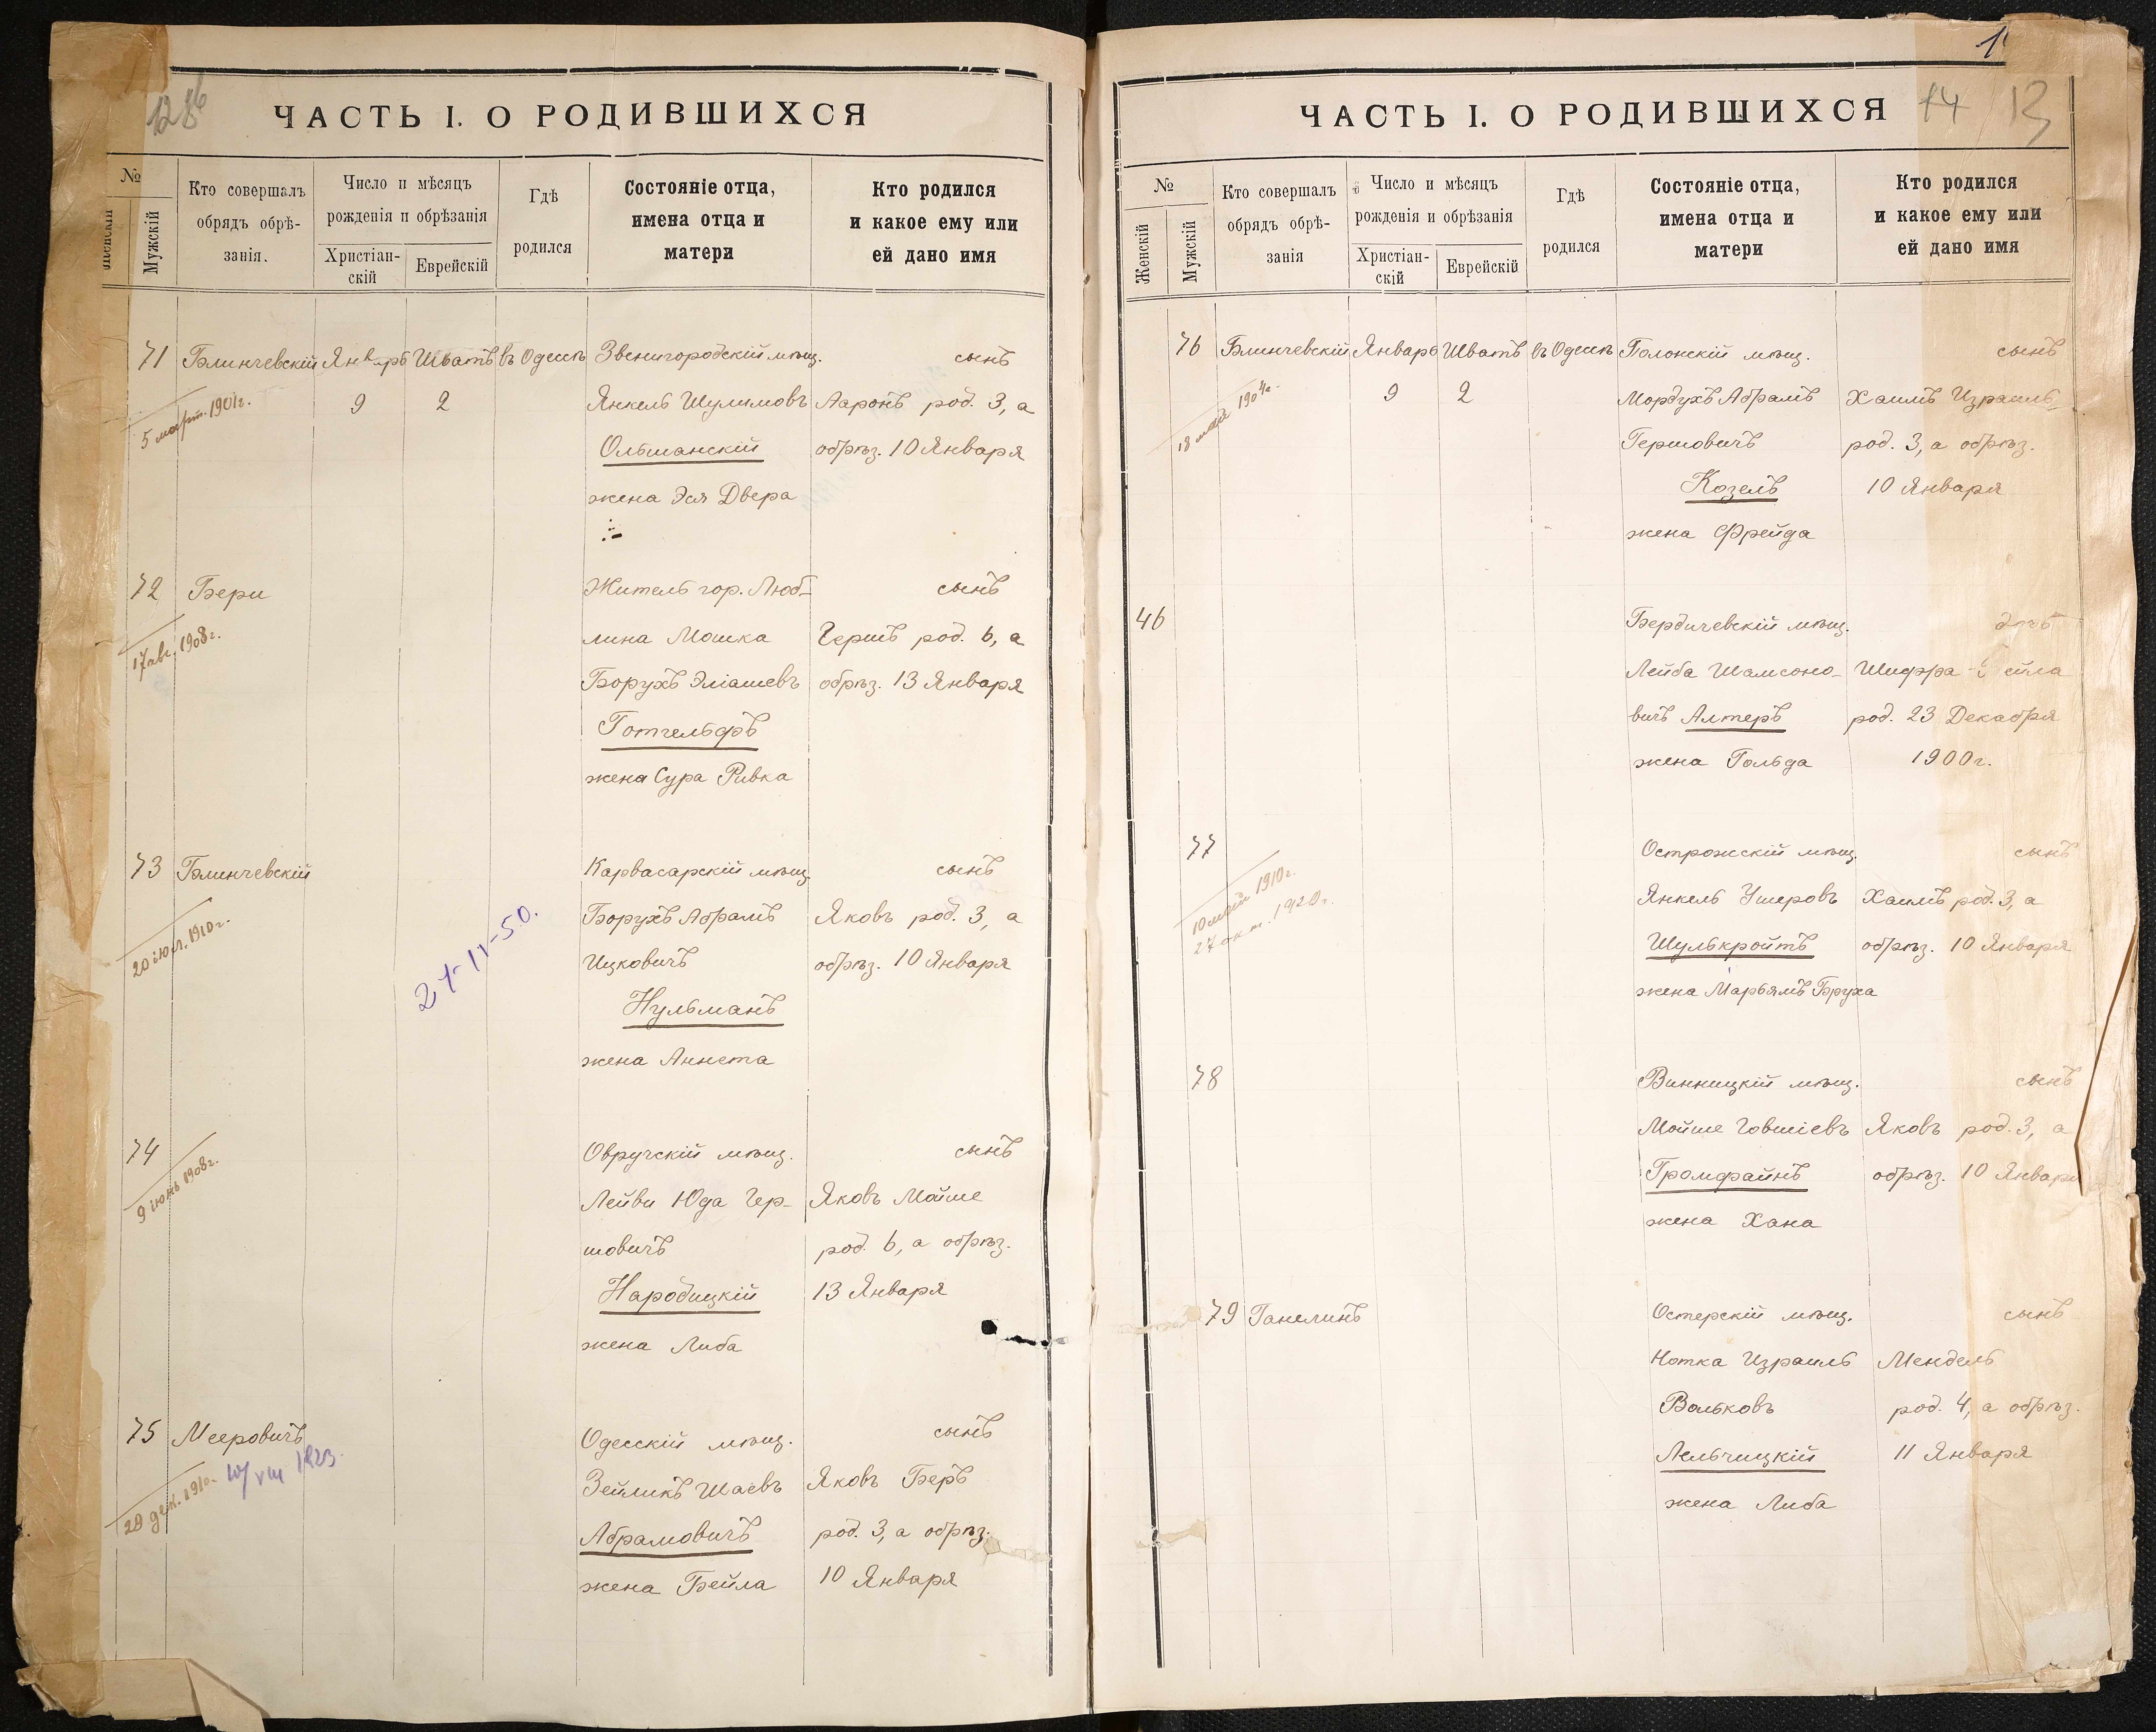 ЧАСТЬ I. О РОДИВШИХСЯ
№
Женскій
Мужскій
Кто совершалъ
обрядъ обрѣ-
занія.
Число и мѣсяцъ
рожденія и обрѣзанія
Христіан-
скій
Еврейскій
Гдѣ
родился
Состояніе отца,
имена отца и
матери
Кто родился
и какое ему или
ей дано имя
71 Блинчевскій Январь Шватъ въ Одессѣ Звенигородскій мѣщ. сынъ
5 март. 1901г. 9 2 Янкель Шулимовъ Ааронъ род. 3, а
Ольшанскій обрѣз. 10 Января
жена Эся Двера
72 Бери Житель гор. Люб- сынъ
17 авг. 1908г. лина Мошка Гершъ род. 6, а
Борухъ Эліашевъ обрѣз. 13 Января
Готгельфъ
жена Сура Ривка
73 Блинчевскій Карвасарскій мѣщ. сынъ
20 іюл. 1910г. 21-11-50. Борухъ Абрамъ Яковъ род. 3, а
Ицковичъ обрѣз. 10 Января
Нульманъ
жена Аннета
74 Овручскій мѣщ. сынъ
9 іюнь 1908г. Лейви Юда Гер- Яковъ Мойше
шовичъ род. 6, а обрѣз.
Народицкій 13 Января
жена Либа
75 Мееровичъ Одесскій мѣщ. сынъ
29 дек. 1910. 10/VIII 1923. Зейликъ Шаевъ Яковъ Беръ
Абрамовичъ род. 3, а обрѣз.
жена Бейла 10 Января
14 13
ЧАСТЬ I. О РОДИВШИХСЯ
№
Женскій
Мужскій
Кто совершалъ
обрядъ обрѣ-
занія
Число и мѣсяцъ
рожденія и обрѣзанія
Христіан-
скій
Еврейскій
Гдѣ
родился
Состояніе отца,
имена отца и
матери
Кто родился
и какое ему или
ей дано имя
76 Блинчевскій Январь Шватъ въ Одессѣ Полонскій мѣщ. сынъ
18 май 1904г. 9 2 Мордухъ Абрамъ Хаимъ Израиль
Гершовичъ род. 3, а обрѣз.
Козелъ 10 Января
жена Фрейда
46 Бердичевскій мѣщ. дочь
Лейба Шамсоно- Шифра
вичъ Алтеръ род. 23 Декабря
жена Гольда 1900г.
77 Острожскій мѣщ. сынъ
10 май 1910г. Янкель Ушеровъ Хаимъ род. 3, а
27 окт. 1920г. Шулькройтъ обрѣз. 10 Января
жена Марьямъ Бруха
78 Винницкій мѣщ. сынъ
Мойше Говшіевъ Яковъ род. 3, а
Громфайнъ обрѣз. 10 Января
жена Хана
79 Ганелинъ Остерскій мѣщ. сынъ
Нотка Израиль Мендель
Вольковъ род. 4, а обрѣз.
Лельчицкій 11 Января
жена Либа